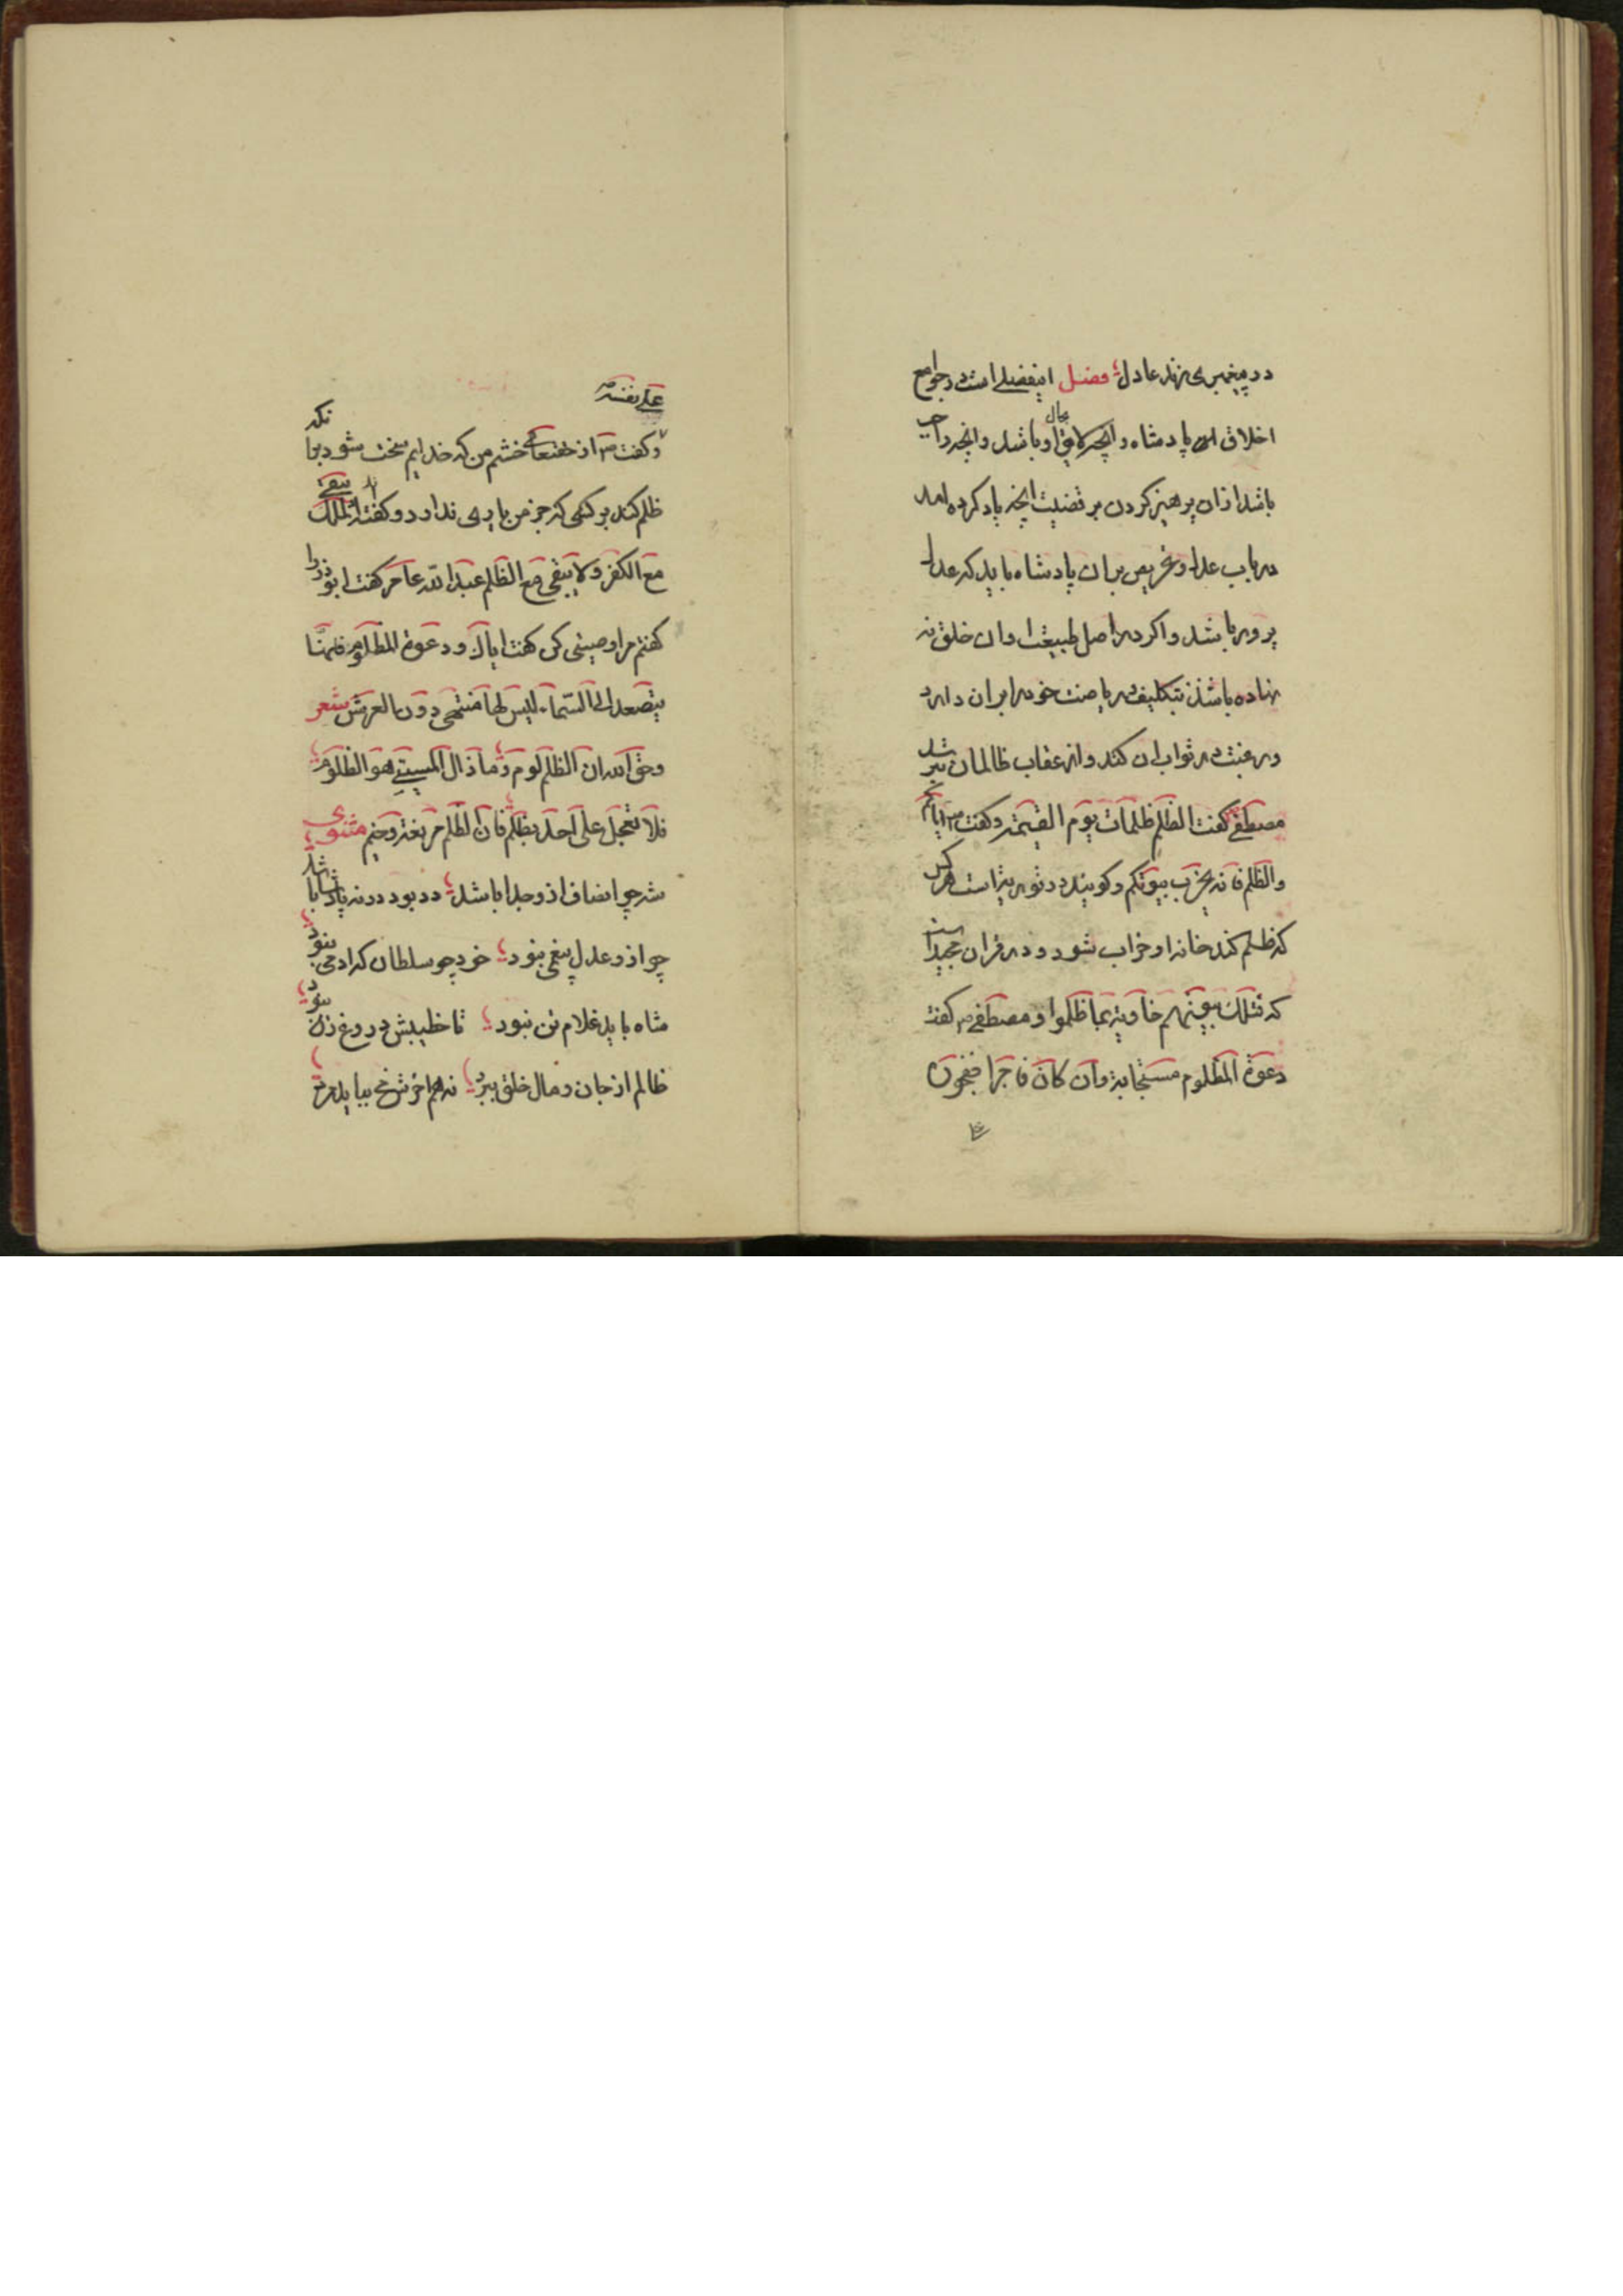 در پیغمبری زند عادل فصل اینفصلی است در جوامع
اخلاق پادشاه و آنچه لایق حال او باشد و آنچه واجب
باشد ازان پرهیز کردن بر قضیت آنچه یاد کرده امد
در باب عدل و تحریص بران پادشاه باید که عدل
پرور باشد و اگر در اصل طبیعت او ان خلق نه
نهاده باشند بتکلیف و ریاضت خود را بران دارد
و رغبت در ثواب ان کند و از عقاب ظالمان
مصطفی گفت الظلم ظلمات یوم القیمة و گفت ص ایاکم
والظلم فانه یخرب بیوتکم و گویند در توریة است هر کس
که ظلم کند خانه او خراب شود و در قران مجید است
که فتلک بیوتهم خاویة بما ظلموا و مصطفی ص گفت
دعوة المظلوم مستجابة وان کان فاجرا ففجوره
علی نفسه
و گفت ص از خشم من که خدایم سخت شود بر انکه
ظلم کند بر کسی که جز من یاری ندارد و گفت الملک یبقی
مع الکفر ولا یبقی مع الظلم عبد الله عامر گفت ابوذر را
گفتم مرا وصیتی کن گفت ایاک ودعوة المظلوم فانها
یتصعد الی السماء لیس لها منتهی دون العرش شعر
وحق الله ان الظلم لوم وما زال المسیئ هو الظلوم
فلا تعجل علی احد بظلم فان الظلم مرتعه وخیم مثنوی
شه چو انصاف ازو جدا باشد دد بود دد نه پادشا باشد
چو ازو عدل نبود خود چو سلطان که ادمی نبود
شاه باید غلام تن نبود تا خطیبش دروغ زن نبود
ظالم از جان و مال خلق ببرد